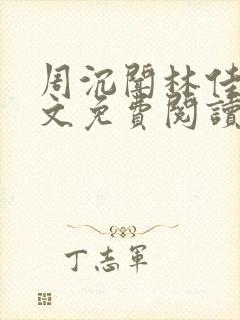 周沉闌林佳
文免費閱讀
丁志軍